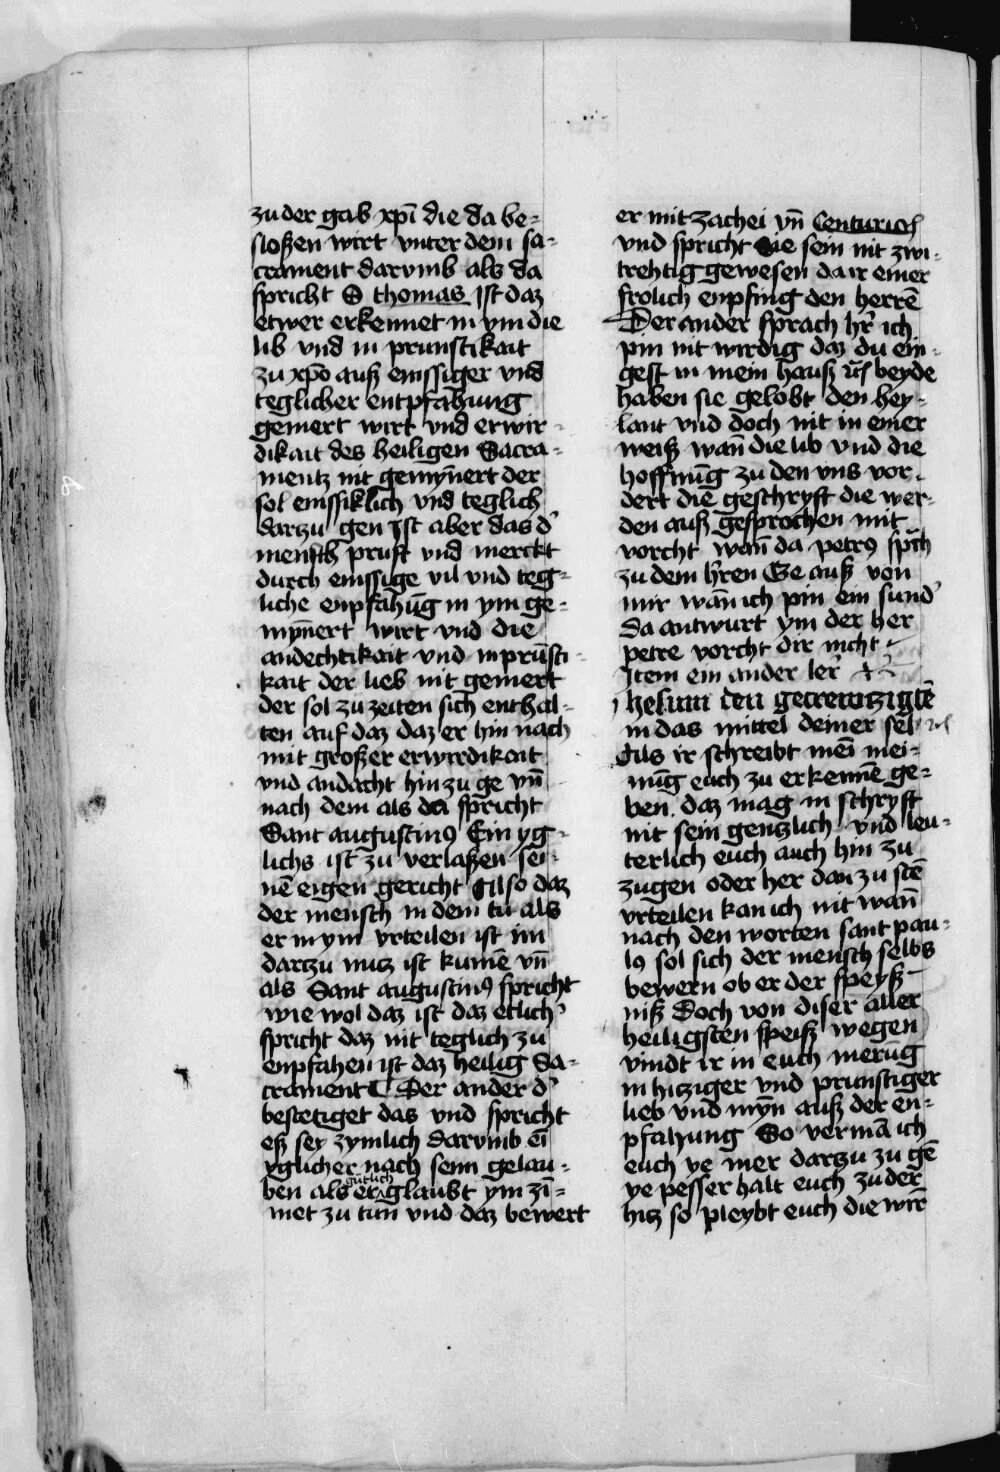 zu der gab xp̄i die da be-
sloßen wirt vnter dem sa-
crament darvmb als da
spricht S thomas Ist daz
etwer erkennet in ym die
lib vnd in prunstikait
zu xp̄o auß emssiger vnd
teglicher entpfahung
gemert wirt vnd erwir-
dikait des heiligen Sacra-
mentz nit gemyn̄ert der
sol emssiklich vnd teglich
darzu gen Ist aber das d'
mensch pruft vnd merckt
durch emssige vil vnd teg-
liche enpfahūg in ym ge-
myn̄ert wirt vnd die
andechtikait vnd inprūsti-
kait der lieb nit gemert
der sol zu zeiten sich enthal-
ten auf daz daz er hin nach
mit großer erwirdikait
vnd andacht hin zu ge vn̄
nach dem als da spricht
Sant augustin9 Ein yg-
lichs ist zu verlaßen sei-
nē eigen gericht Also daz
der mensch in dem tu als
er in ym vrteilen ist im
dartzu nutz ist kumē vn̄
als Sant augustin9 spricht
wie wol daz ist daz etlich'
spricht daz nit teglich zu
enpfahen ist daz heilig Sa-
crament Der ander d'
bestetiget das vnd spricht
eß sey zymlich darvmb ei͂
yglicher nach seim gelau-
gutlich
ben als er glaubt ym zī-
met zu tun vnd daz bewert
er mit zachei vn̄ Centurio
vnd spricht Sie sein nit zwi-
trehtig gewesen da ir einer
frolich enpfing den herrē
Der ander sprach hr̄ ich
pin nit wirdig daz du ein-
gest in mein hauß rc̄ beyde
haben sie gelobt den hey-
lant vnd doch nit in einer
weiß wan̄ die lib vnd die
hoffnūg zu den vns vor-
dert die geschryft die wer-
den auß gesprochen mit
vorcht wan̄ da petr9 sp̄ch
zu dem hr̄ren Ge auß von
mir wan̄ ich pin ein sund'
da antwurt ym der her
petre vorcht dir nicht
Item ein ander ler'
ihesum den gecreutzigtē
in das mittel deiner sel rc̄
Als ir schreibt mei͂ mei-
nūg euch zu erkennē ge-
ben. daz mag in schryft
nit sein gentzlich vnd leu-
terlich euch auch hin zu
zugen oder her dan zu stē
vrteilen kan ich nit wan̄
nach den worten sant pau-
l9 sol sich der mensch selbs
bewern ob er der speyß
niß Doch von diser aller
heiligsten speiß wegen
vindt ir in euch merūg
in hitziger vnd prunstiger
lieb vnd myn̄ auß der en-
pfahung So vermā ich
euch ye mer dartzu zu gē
ye pesser halt euch zu der
hitz so pleybt euch die wir̄